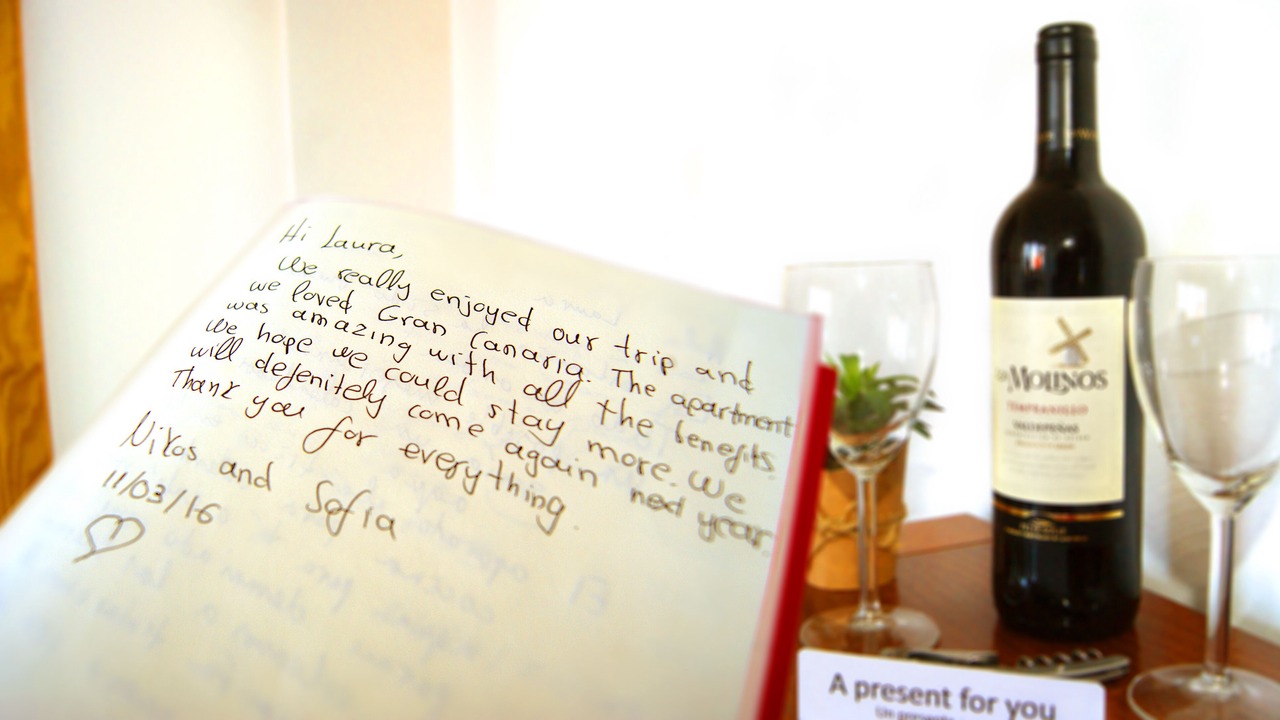 Hi Laura,
We really enjoyed our trip and
we loved Gran Canaria. The apartment
was amazing with all the benefits.
We hope we could stay more. We
will defenitely come again next year.
Thank you for everything.
Nikos and Sofia
11/03/16
Los MOLINOS
TEMPRANILLO
VALDEPEÑAS
A present for you
Un presente